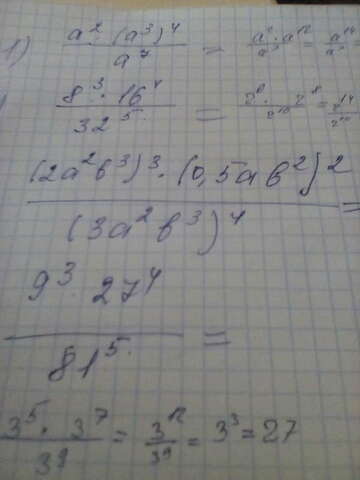 1) a² · (a³)⁴ / a⁷ = a² · a¹² / a⁷ = a¹⁴ / a⁷
8³ · 16⁴ / 32⁵ =
(2a²b³)³ · (0,5ab²)² / (3a²b³)⁴ =
9³ · 27⁴ / 81⁵ =
3⁵ · 3⁷ / 3⁹ = 3¹² / 3⁹ = 3³ = 27